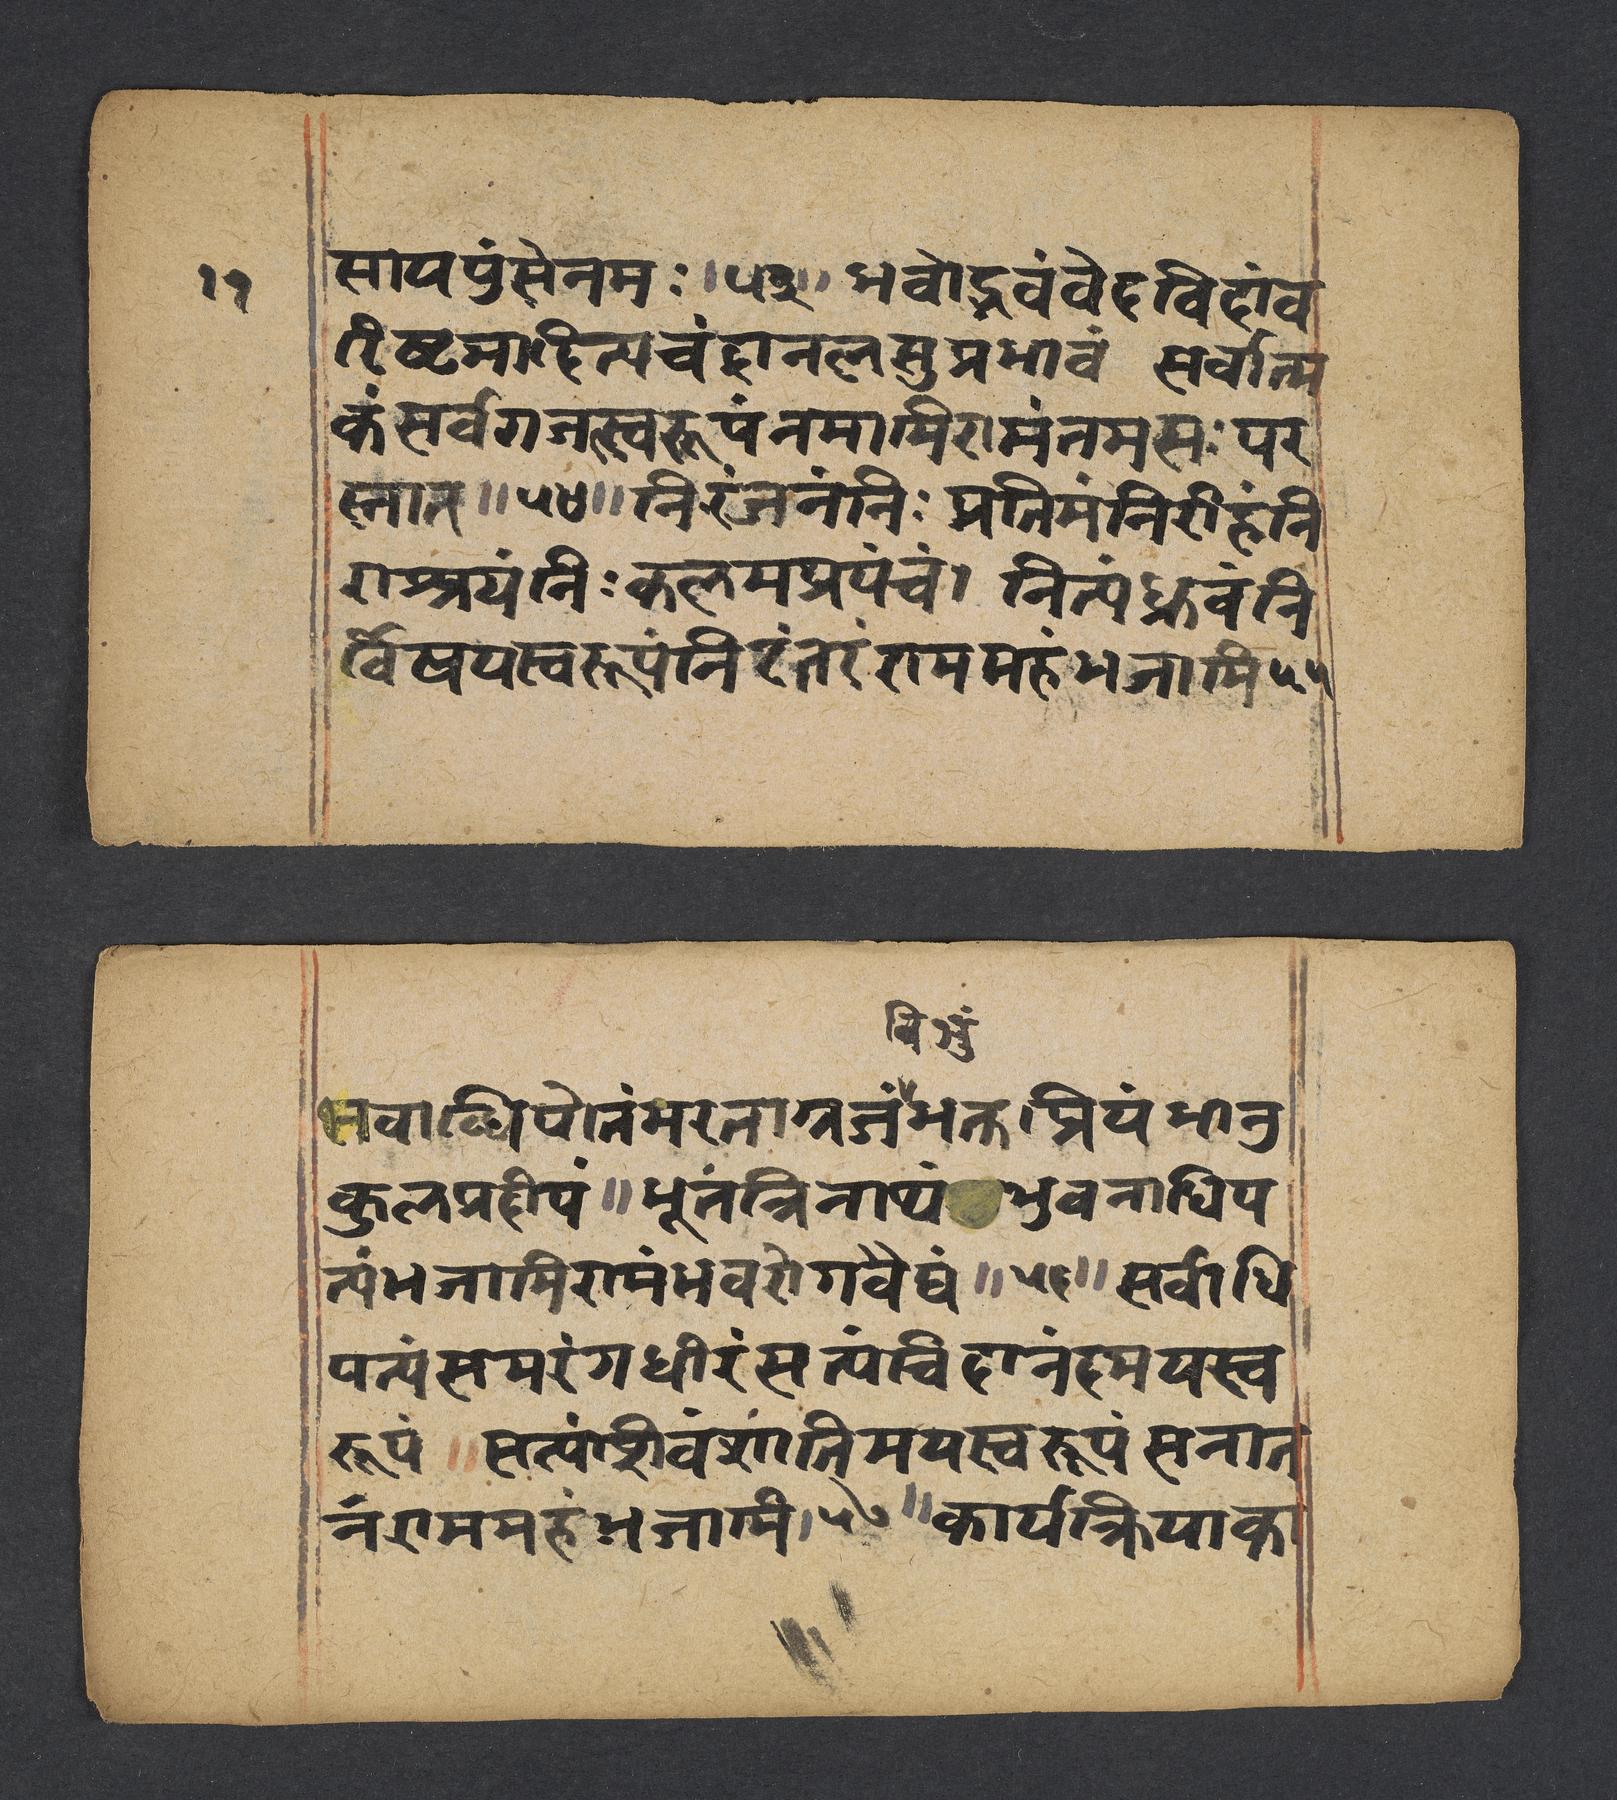 १२
सायपुंसेनमः॥५३॥भवोद्भवंवेदविदांव
रीष्टमादित्यचंद्रानलसुप्रभावं सर्वात्म
कंसर्वगजत्स्वरूपंनमामिरामंतमसःपर
स्तात्॥५४॥निरंजनंनिःप्रतिमंनिरीहंनि
राश्रयंनिःकलमप्रपंचं। नित्यंध्रुवंनि
र्विषयस्वरूपंनिरंतरंराममहंभजामि५५
विभुं
भवाब्धिपोतंभरताग्रजंभक्तप्रियंभानु
कुलप्रदीपं॥भूतंत्रिनाथं भुवनाधिप
त्यंभजामिरामंभवरोगवैद्यं॥५६॥सर्वाधि
पत्यंसमरंगधीरंसत्यंचिदानंदमयस्व
रूपं॥सत्यंशिवंशांतिमयस्वरूपंसनात
नंराममहंभजामि।५७॥कार्यक्रियाका